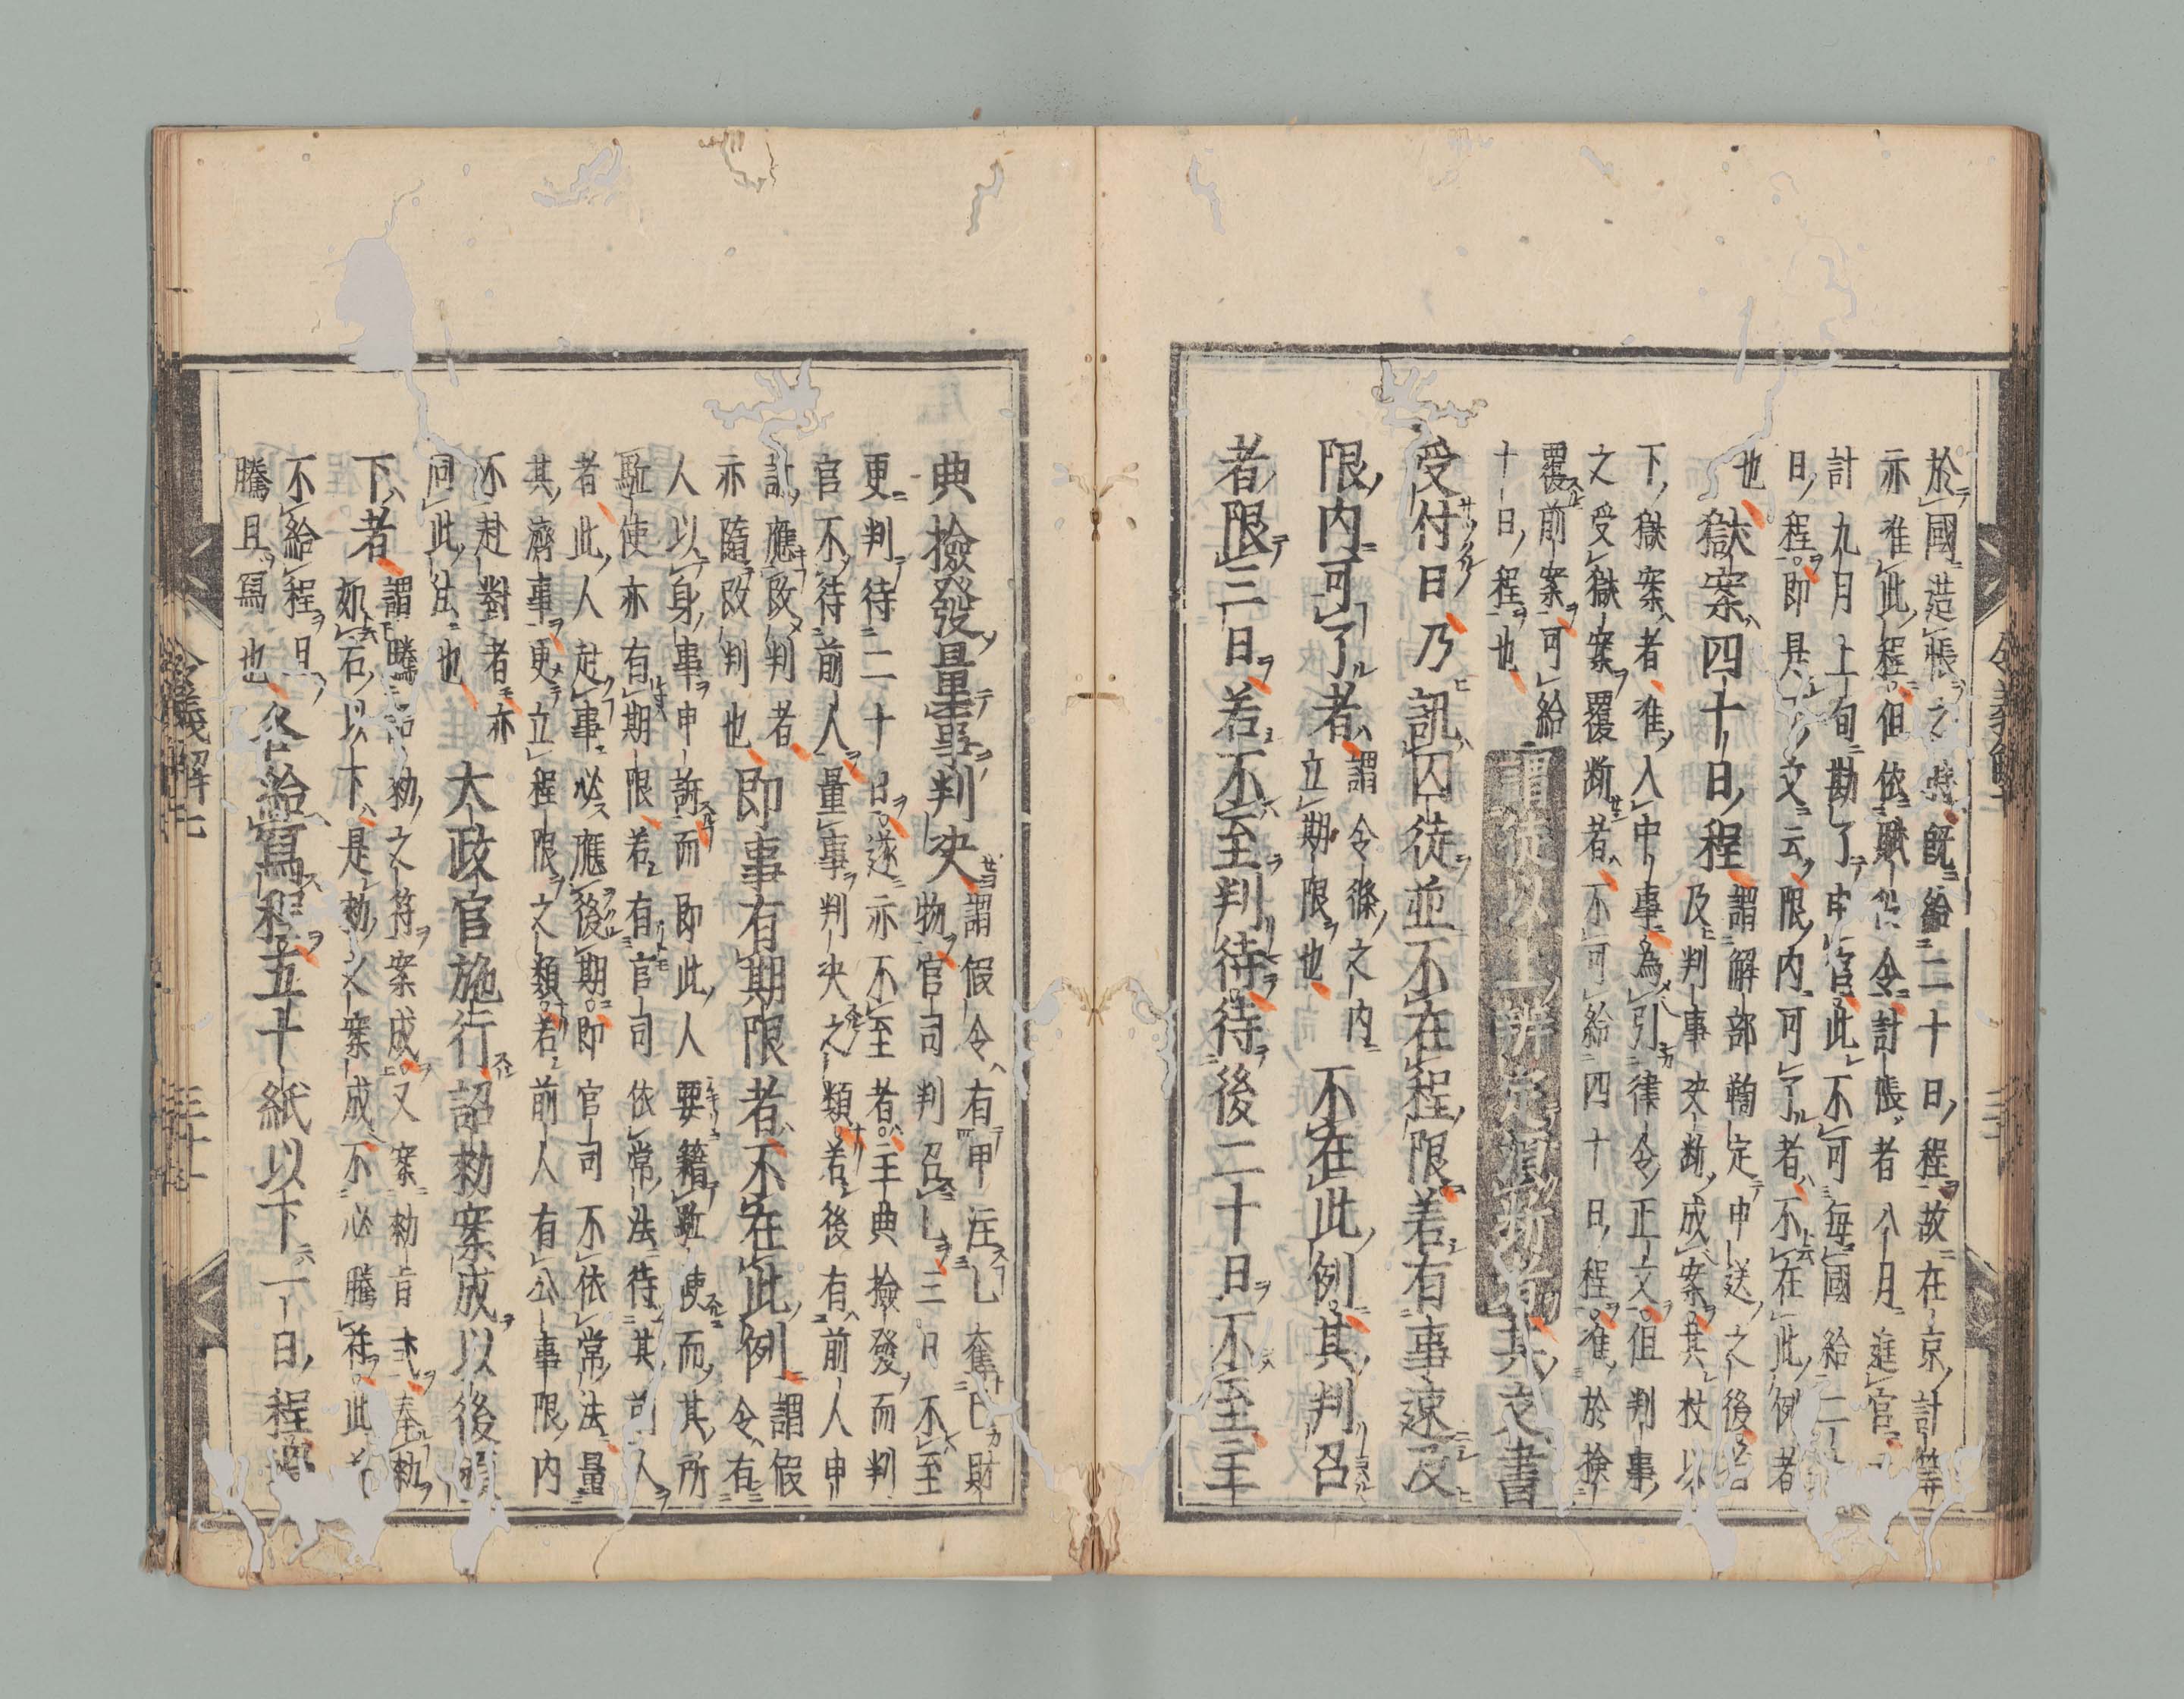 於國造帳之時既給二十日程故在京計等
亦准此程但依賦役令計帳者八月進官
計九月上旬勘了申官此不可毎國給二
日程即是文云限内可了者不在此例者
也獄案四十日程謂解部鞫定申送之後
及判事决断成案其杖以
下獄案者准入中事為引律令正文但判事
之受獄案覆断者不可給四十日程准於
覆前案可給
十日程也謂徒以上辨定須断者其文書
受付日乃訊囚徒並不在程限若有事速及
限内可了者謂令條之内
立期限也不在此例其判召
者限三日若不至判待待後二十日不至主
典撿發量事判决謂假令有甲注乙奪己財
物官司判召乙三日不至
更判待二十日遂亦不至者主典撿發而判
官不待前人量事判决之類若後有前人申
訴應改判者
亦隨改判也即事有期限者不在此例謂假
令有
人以身事申訴而即此人要籍駈使而其所
駈使亦有期限若有官司依常法待其前人
者此人赴事必應後期即官司不依常法量
其濟事更立程限之類若前人有公事限内
不赴對者亦
同此法也大政官施行詔勅案成以後頒
下者謂騰詔勅之符案成又案勅旨式奉勅
如右以下是勅文案成不必騰符此
不給程日
騰且寫也各給寫程五十紙以下一日程
令義解七
三十一